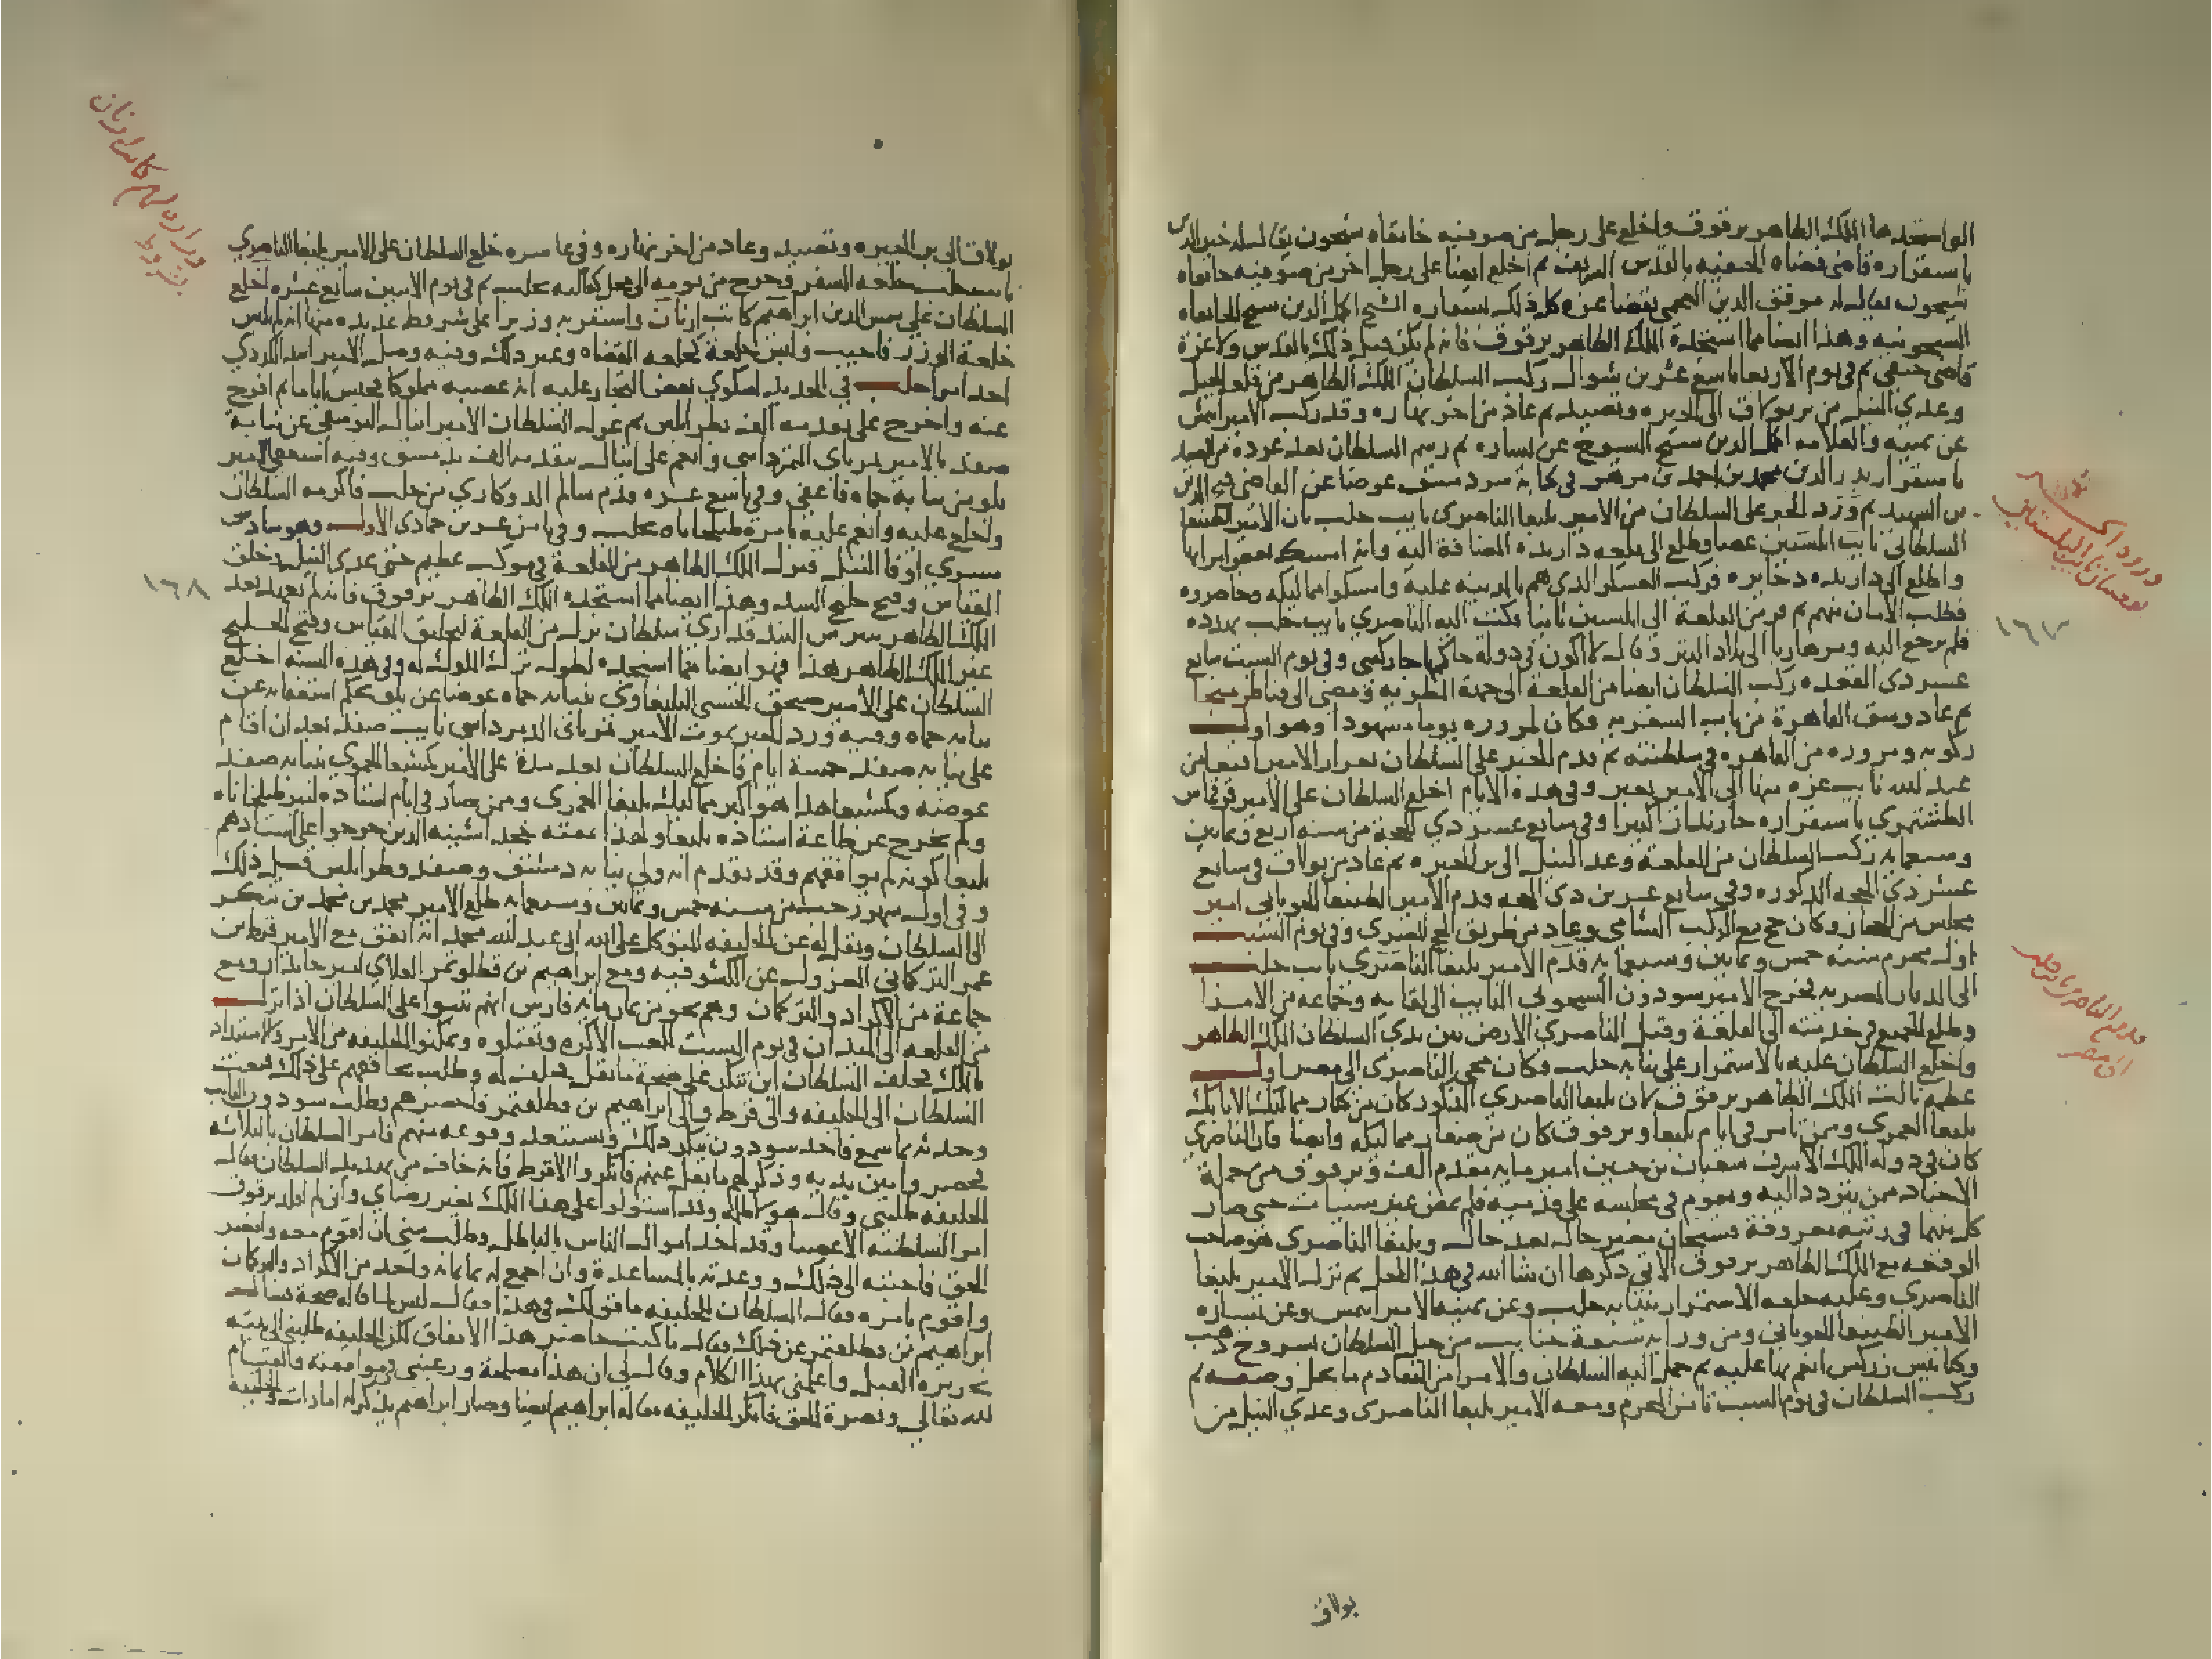 استجدها الملك الظاهر برقوق واخلع على رجل من صوفيه خانقاه شيخون يقال له خير الدين
باستقراره قاضى قضاه الحنفيه بالقدس الشريف ثم اخلع ايضا على رجل اخر من صوفيه خانقاه
شيخون يقال له موفق الدين العجمى بقضا غزه كل ذلك بسفاره الشيخ اكمل الدين شيخ الخانقاه
الشيخونيه وهذا ايضا مما استجده الملك الظاهر برقوق فانه لم يكن قبل ذلك بالقدس ولا غزة
قاضى حنفى ثم فى يوم الاربعا تاسع عشرين شوال ركب السلطان الملك الظاهر من قلعه الجبل
وعدي النيل من بر بولاق الى الجيزه وتصيد ثم عاد من اخر نهاره وقد ركب الامير ايتمش
عن يمينه والعلامه اكمل الدين شيخ الشيوخ عن يساره ثم رسم السلطان بعد عوده من الصيد
باستقرار بدر الدين محمد بن احمد بن مزهر فى كتابه سر دمشق عوضا عن القاضى فتح الدين
بن الشهيد ثم ورد الخبر على السلطان من الامير يلبغا الناصرى نايب حلب بان الامير الطنبغا
السلطانى نايب ابلستين عصا وطلع الى قلعه دارنده المضافة اليه وانه امسك بعض امرايها
واطلع الى دارنده ذخايره فركب العسكر الذي هم بالمدينه عليه وامسكوا مماليكه وحاصروه
فطلب الامان منهم ثم فر من القلعة الى ابلستين ثانيا فكتب اليه الناصري نايب حلب يهدده
فلم يرجع اليه ومر هاربا الى بلاد التتر وقال لا اكون فى دولة حاكمها جاركسى وفى يوم السبت سابع
عشر ذى القعده ركب السلطان ايضا من القلعة الى جهة المطريه ومضى الى قناطر
ثم عاد وشق القاهرة من باب الشعريه فكان لمروره يوما مشهودا وهو اول
ركوبه ومروره من القاهره فى سلطنته ثم قدم الخبر على السلطان بفرار الامير اقبغا من
عبد الله نايب غزه منها الى الامير نعير وفى هذه الايام اخلع السلطان على الامير قرقماس
الطشتمرى باستقراره خازندار كبيرا وفى سابع عشر ذي الحجة من سنه اربع وثمانين
وسبعمايه ركب السلطان من القلعة وعدا النيل الى بر الجيزه ثم عاد من بولاق فى سابع
عشر ذي الحجه المذكوره وفى سابع عشرين ذى الحجه قدم الامير الطنبغا الجوبانى امير
مجلس من الحجاز وكان حج مع الركب الشامى وعاد من طريق الحج المصري وفى يوم السبت
اول محرم سنه خمس وثمانين وسبعمايه قدم الامير يلبغا الناصري نايب حلب
الى الديار المصريه فخرج الامير سودون الشيخونى النايب الى لقايه وجماعه من الامرا
وطلع الجميع فى خدمته الى القلعة وقبل الناصري الارض بين يدي السلطان الملك الظاهر
واخلع السلطان عليه بالاستمرار على نيابه حلب فكان مجى الناصري الى مصر اول
عظمه نالت الملك الظاهر برقوق لان يلبغا الناصري المذكور كان من كبار مماليك الاتابك
يلبغا العمرى وممن تامر فى ايام يلبغا وبرقوق كان من صغار مماليكه وايضا فان الناصري
كان فى دوله الملك الاشرف شعبان بن حسين امير مايه مقدم الف وبرقوق من جملة
الاجناد ممن يتردد اليه ويقوم فى مجلسه على قدميه فلم يمض غير سنيات حتى صار
كل منهما فى رتبه معروفة فسبحان مغير حال بعد حال ويلبغا الناصرى هو صاحب
الوقعه مع الملك الظاهر برقوق الاتى ذكرها ان شا الله فى هذا المحل ثم نزل الامير يلبغا
الناصري وعليه خلعه الاستمرار بنيابه حلب وعن يمينه الامير ايتمش وعن يساره
الامير الطنبغا الجوبانى ومن ورايه سبعة جنايب من خيل السلطان بسروج ذهب
وكنابيش زركش انعم بها عليه ثم حمل اليه السلطان والامرا من التقادم ما يجل وصفه ثم
ركب السلطان فى يوم السبت ثامن المحرم ومعه الامير يلبغا الناصرى وعدي النيل من
بولاق
ورود
١٦٧
قدوم الناصر نايب حلب
الى مصر
بولاق الى بر الجيزه وتصيد وعاد من اخر نهاره وفى عاشره خلع السلطان على الامير يلبغا الناصري
خلعه السفر وخرج من يومه الى محل كفالته بحلب ثم فى يوم الاثنين سابع عشره اخلع
السلطان على شمس الدين ابراهيم كاتب ارنان واستقر به وزيرا على شروط عديده منها انه لم يلبس
خلعة الوزر ولبس خلعة كخلعه القضاه وغير ذلك وفيه وصل الامير الكردي
احد امرا حلب فى الحديد لشكوي بعض التجار عليه انه غصبه مملوكا فحبس اياما ثم افرج
عنه واخرج على تقدمه الف بطرابلس ثم عزل السلطان الامير اينال اليوسفى عن نيابة
صفد بالامير تمرباى التمرداسى وانعم على اينال بتقدمه الف بدمشق وفيه استعفى الامير
يلو من نيابة حماه فاعفى وفى تاسع عشره قدم سالم الدوكاري من حلب فاكرمه السلطان
واخلع عليه وانعم عليه بامرة طبلخاناه بحلب وفى ثامن عشرين جمادى الاول وهو سادس
مسرى اوفا النيل فنزل الملك الظاهر من القلعة فى موكب عظيم حتى عدى النيل وخلق
المقياس وفتح خليج السد وهذا ايضا مما استجده الملك الظاهر برقوق فانه لم يعهد بعد
الملك الظاهر بيبرس البندقداري سلطان نزل من القلعة لتخليق المقياس وفتح الخليج
غير الملك الظاهر هذا فهو ايضا مما استجده لطول ترك الملوك له وفى هذه السنه اخلع
السلطان على الامير صنجق الحسنى اليلبغاوى بنيابه حماه عوضا عن يلو بحكم استعفايه عن
نيابه حماه وفيه ورد الخبر بموت الامير تمرباى الدمرداشى نايب صفد بعد ان اقام
على نيابه صفد خمسة ايام فاخلع السلطان بعد مدة على الامير كمشبغا الحموي بنيابه صفد
عوضه وكمشبغا هذا هو اكبر مماليك يلبغا العمرى وممن صار فى ايام استاذه امير طبلخاناه
ولم يخرج عن طاعة استاذه يلبغا ولهذا مقته خجداشيته الذين خرجوا على استاذهم
يلبغا كونه لم يوافقهم وقد تقدم انه ولى نيابه دمشق وصفد وطرابلس قبل ذلك
وفى اول شهر رجب من سنه خمس وثمانين وسبعمايه طلع الامير محمد بن محمد بن تنكز
الى السلطان ونقل له عن الخليفه المتوكل على الله ابى عبد الله محمد انه اتفق مع الامير قرط بن
عمر التركمانى المعزول عن الكشوفيه ومع ابراهيم بن قطلوتمر العلاي امير جاندار ومع
جماعة من الاكراد والتركمان وهم نحو من ثمان مايه فارس انهم يثبوا على السلطان اذا نزل
من القلعه الى الميدان فى يوم السبت للعب الاكره ويقتلوه ويمكنوا الخليفه من الامر والاستبداد
بالملك فحلف السلطان ابن تنكز على صحة ما نقل فحلف له وطلب يحاققهم على ذلك فبعث
السلطان الى الخليفه والى قرط والى ابراهيم بن قطلقتمر فاحضرهم وطلب سودون النايب
وحدثه بما سمع فاخذ سودون ينكر ذلك ويستبعد وقوعه منهم فامر السلطان بالثلاثه
فحضروا بين يديه وذكر لهم ما نقل عنهم فانكروا الا قرط فانه خاف من تهديد السلطان فقال
الخليفه طلبنى وقال هولا ظلمه وقد استولوا على هذا الملك بغير رضاي وانى لم اقلد برقوق
امر السلطنه الا غصبا وقد اخذ اموال الناس بالباطل وطلب منى ان اقوم معه وانصر
الحق فاجبته الى ذلك ووعدته بالمساعدة وان اجمع له ثمانمايه واحد من الاكراد والتركمان
واقوم بامره فقال السلطان للخليفه ما قولك فى هذا فقال ليس لما قاله صحة فسال
ابراهيم بن قطلقتمر عن ذلك فقال ما كنت حاضر هذا الاتفاق لكن الخليفه طلبنى الى بيته
بجزيره الفيل واعلمنى بهذا الكلام وقال لى ان هذا مصلحة ورغبنى فى موافقته والقيام
لله تعالى ونصرة الحق فانكر الخليفه مقاله ابراهيم ايضا وصار ابراهيم يذكر له امارات والخليفه
١٦٨
وزاره ابراهيم كاتب ارنان
بشروط